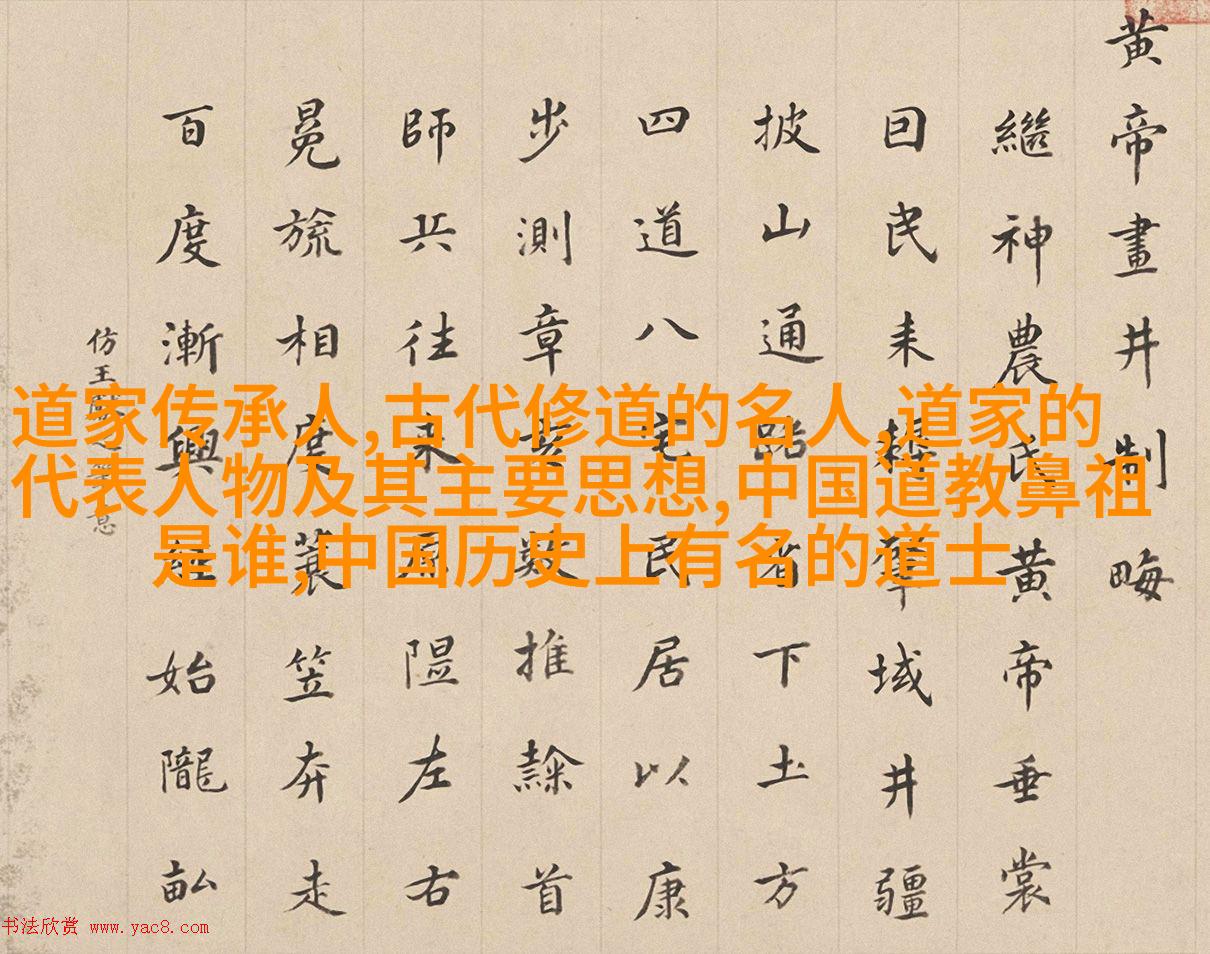 道家传承人,古代修道的名人,道家的
代表人物及其主要思想,中国道教鼻祖
是谁,中国历史上有名的道士
黄帝畫井制畮
繼神農氏黄帝垂裳
囙民耒耨肇域井疆
披山通路省下土方
四道八宅民居以康
步測章亥數推隸首
師兵往来原隰左右
冕旒相度蓑笠奔走
百度漸興經始隴畝
仿王意
书法欣赏 www.yac8.com